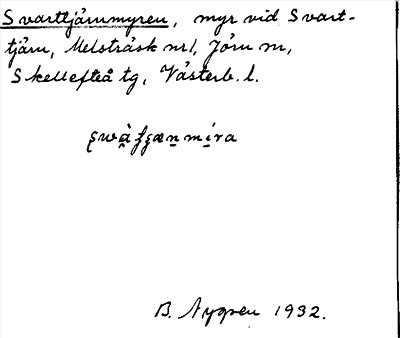 Svarttjärnmyren, myr vid Svart-
tjärn, Melsträsk nr1, Jörn sn,
Skellefteå tg, Västerb. l.
B. Nygren 1932.